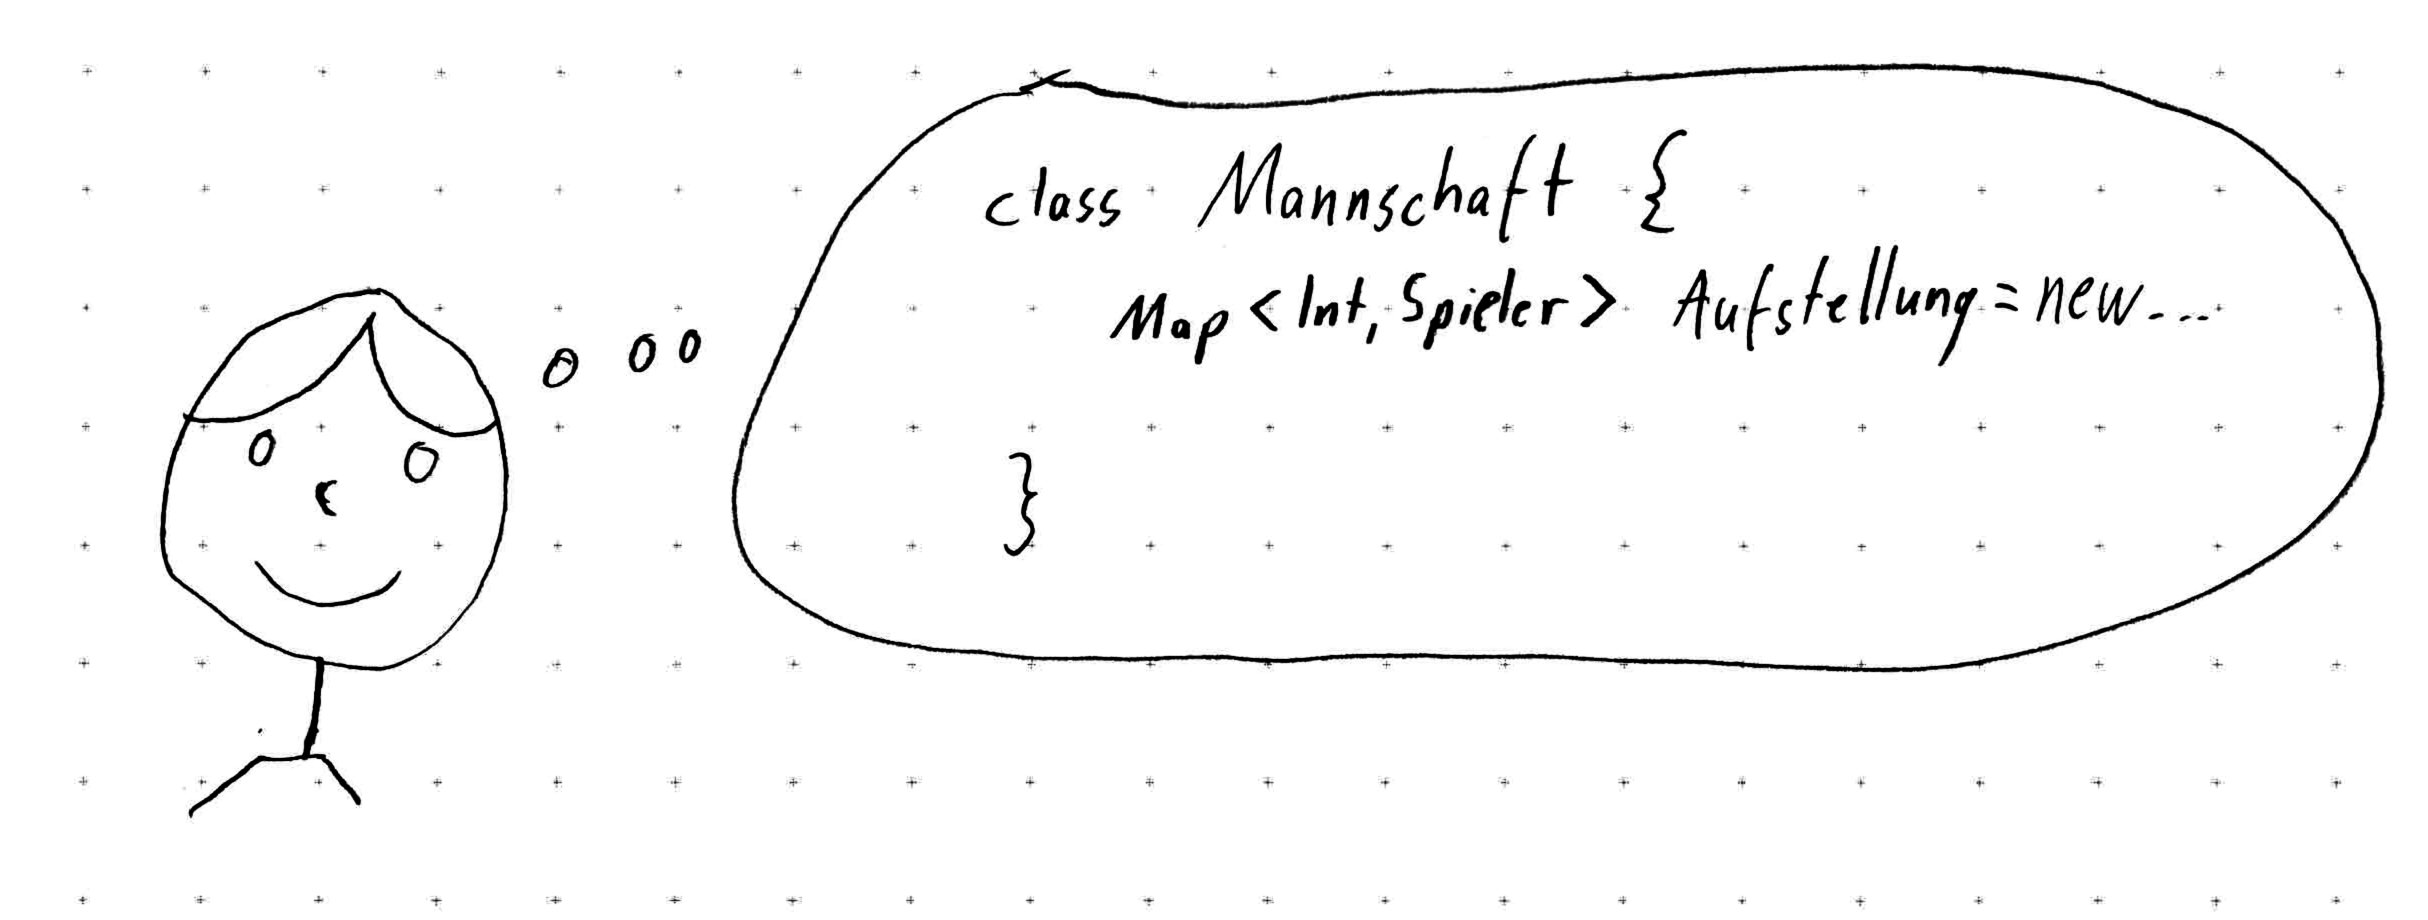 class Mannschaft {
Map <Int, Spieler> Aufstellung = new...
}